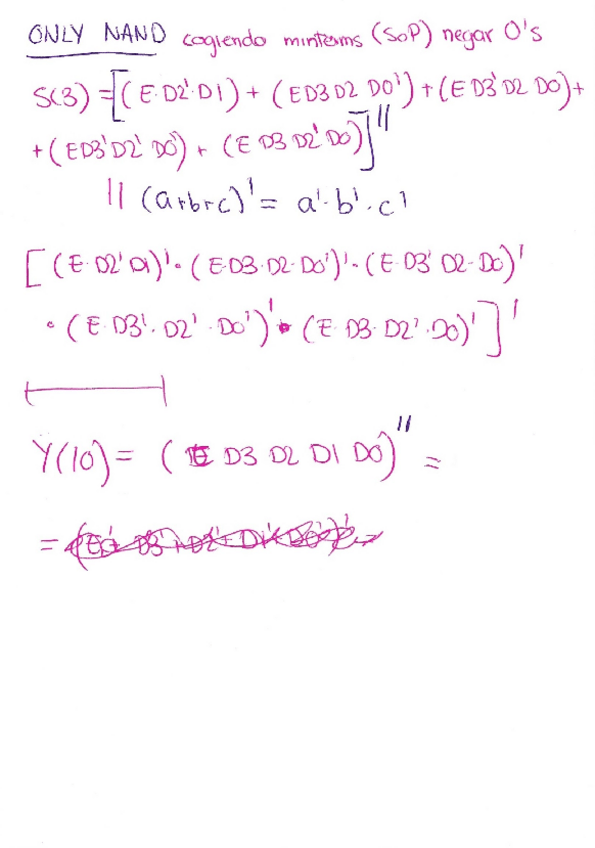 ONLY NAND cogiendo minterms (SoP) negar 0's
S(3) = [(E·D2'·D1) + (E D3 D2 D0') + (E D3' D2 D0) +
+ (E D3' D2' D0') + (E D3 D2' D0)]''
|| (a+b+c)' = a'·b'·c'
[(E·D2' D1)'·(E·D3·D2·D0')'·(E·D3' D2·D0)'
·(E·D3'·D2'·D0')'·(E·D3·D2'·D0)']'
Y(10) = (E D3 D2 D1 D0)'' =
=